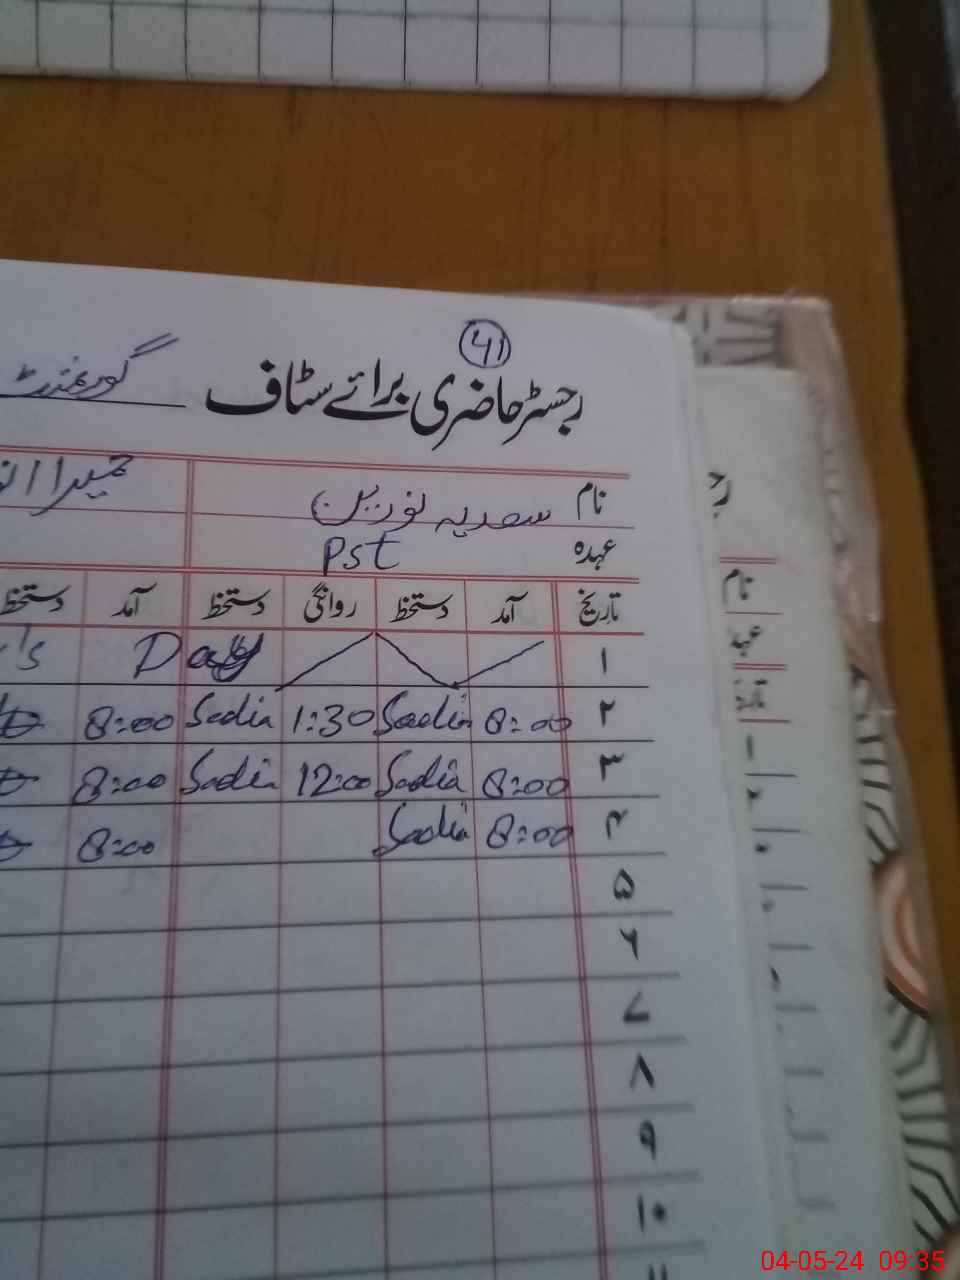 41
رجسٹر حاضری برائے سٹاف گورنمنٹ
نام سعدیہ نورین حمیرا
عہدہ Pst
تاریخ آمد دستخط روانگی دستخط آمد دستخط
۱ Day 's
۲ 8:00 Sadia 1:30 Sadia 8:00
۳ 8:00 Sadia 12:00 Sadia 8:00
۴ 8:00 Sadia 8:00
۵
۶
۷
۸
۹
۱۰
۱۱
نام
04-05-24 09:35